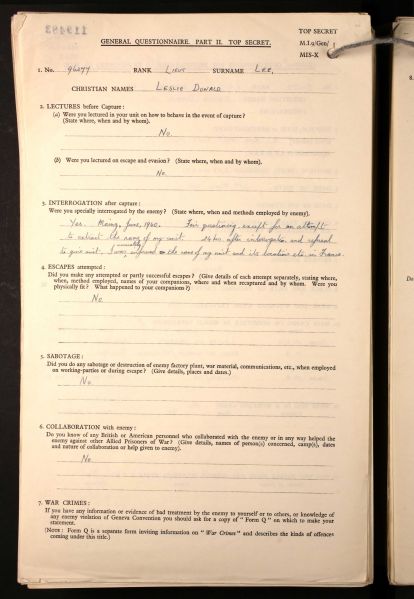 TOP SECRET
GENERAL QUESTIONNAIRE. PART II. TOP SECRET.
M.I.9/Gen/
MIS-X
1. No. RANK Lieut SURNAME Lee,
CHRISTIAN NAMES Leslie Donald
2. LECTURES before Capture:
(a) Were you lectured in your unit on how to behave in the event of capture?
(State where, when and by whom).
No.
(b) Were you lectured on escape and evasion? (State where, when and by whom).
No.
3. INTERROGATION after capture:
Were you specially interrogated by the enemy? (State where, when and methods employed by enemy).
Yes. Mainz, June, 1940. Fair questioning except for an attempt
to extract the name of my unit. 24 hrs after interrogation and refusal
to give unit, I was casually informed the name of my unit and its location etc. in France.
4. ESCAPES attempted:
Did you make any attempted or partly successful escapes? (Give details of each attempt separately, stating where,
when, method employed, names of your companions, where and when recaptured and by whom. Were you
physically fit? What happened to your companions?)
No
5. SABOTAGE:
Did you do any sabotage or destruction of enemy factory plant, war material, communications, etc., when employed
on working-parties or during escape? (Give details, places and dates.)
No.
6. COLLABORATION with enemy:
Do you know of any British or American personnel who collaborated with the enemy or in any way helped the
enemy against other Allied Prisoners of War? (Give details, names of person(s) concerned, camp(s), dates
and nature of collaboration or help given to enemy).
No.
7. WAR CRIMES:
If you have any information or evidence of bad treatment by the enemy to yourself or to others, or knowledge of
any enemy violation of Geneva Convention you should ask for a copy of "Form Q" on which to make your
statement.
(NOTE: Form Q is a separate form inviting information on "War Crimes" and describes the kinds of offences
coming under this title.)
8.
Do